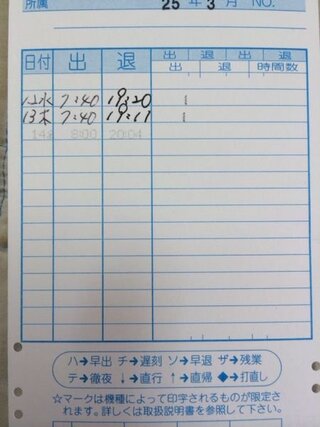 所属 25 年 3 月 NO.
日付 出 退 出 退 出 退
出 退 時間数
12水 7:40 19:20
13木 7:40 19:11
14 8:00 20:04
ハ→早出 チ→遅刻 ソ→早退 ザ→残業
テ→徹夜 ↓→直行 ↑→直帰 ◆→打直し
☆マークは機種によって印字されるものが限定さ
れます。詳しくは取扱説明書を参照して下さい。